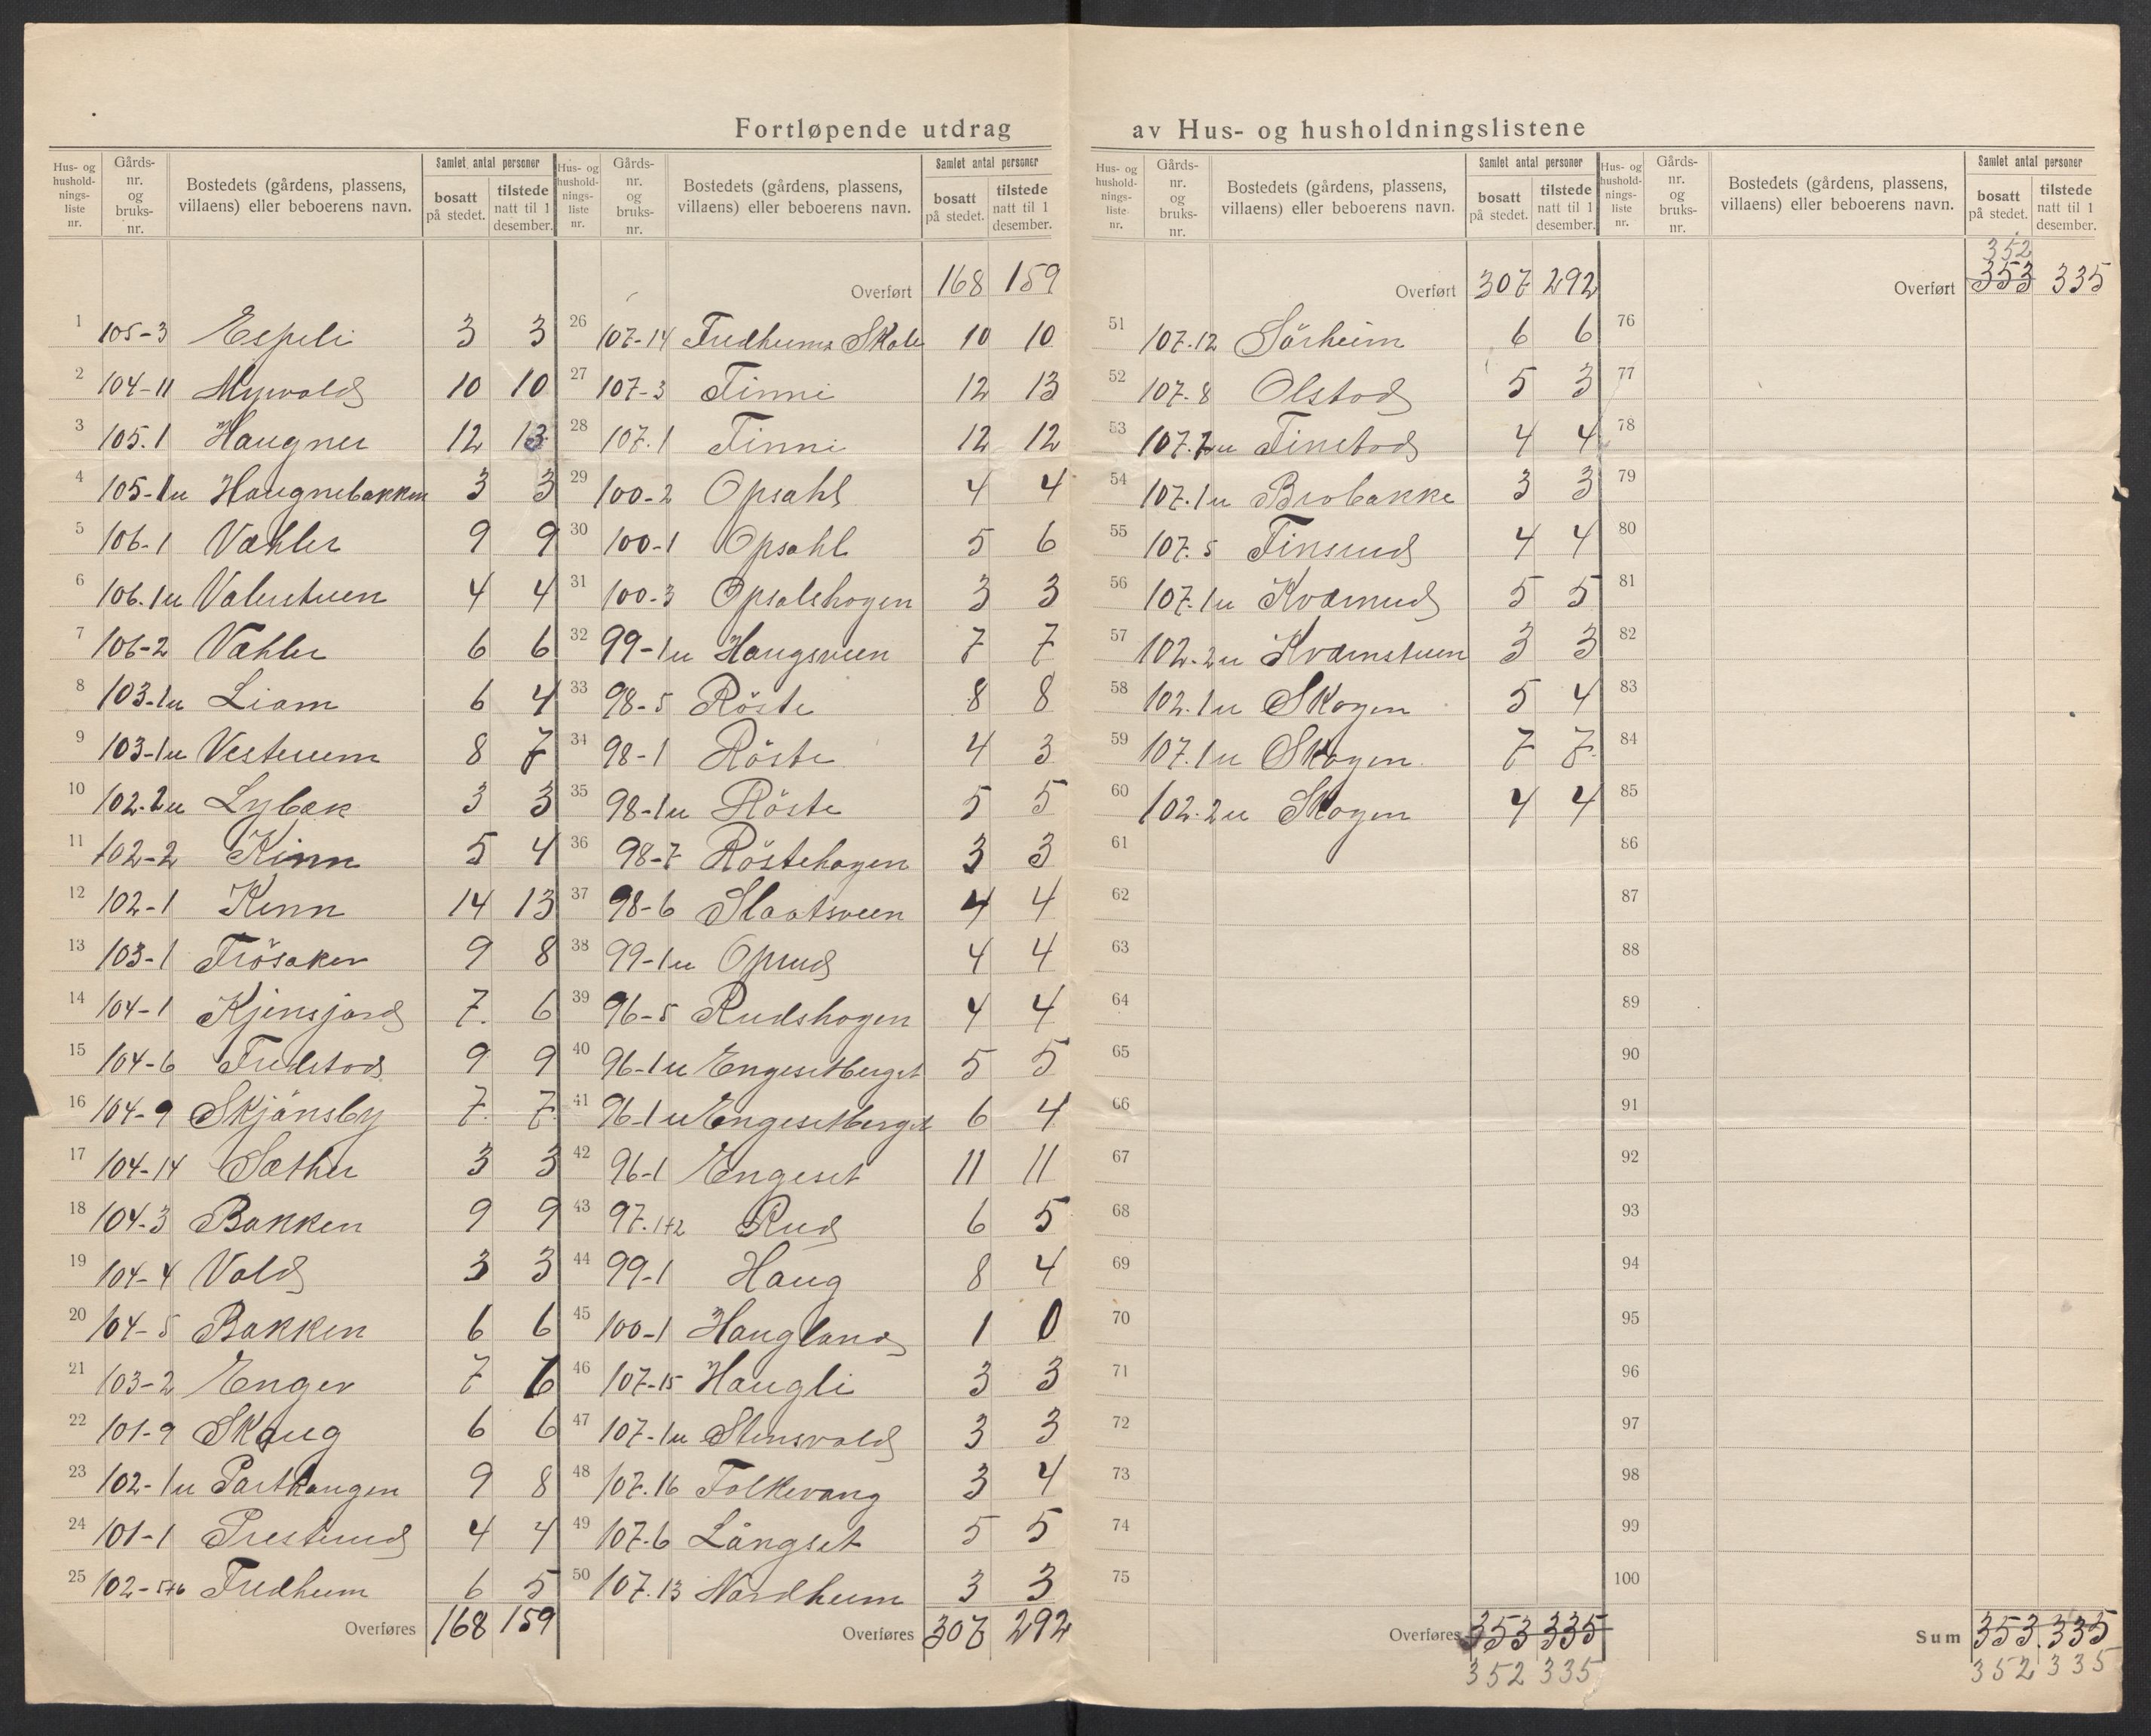 Fortløpende utdrag av Hus- og husholdningslistene
Hus- og hushold-nings-liste nr. Gårds-nr. og bruks-nr. Bostedets (gårdens, plassens, villaens) eller beboerens navn. Samlet antal personer bosatt på stedet. tilstede natt til 1 desember.
1 105-3 Espeli 3 3
2 104-11 Myrvold 10 10
3 105.1 Haugner 12 13
4 105-1u Haugnebakken 3 3
5 106-1 Væhler 9 9
6 106.1u Valerstuen 4 4
7 106-2 Væhler 6 6
8 103-1u Liam 6 4
9 103-1u Vesterem 8 7
10 102-2u Lybæk 3 3
11 102-2 Kinn 5 4
12 102-1 Kinn 14 13
13 103-1 Frösaker 9 8
14 104-1 Kjensjord 7. 6
15 104-6 Fredstad 9 9
16 104-9 Skjönsby 7. 7.
17 104-14 Sæther 3 3
18 104-3 Bakken 9 9
19 104-4 Vold 3 3
20 104-5 Bakken 6 6
21 103-2 Enger 7 6
22 101-9 Skaug 6 6
23 102-1u Parthaugen 9 8
24 101-1 Presterud 4 4
25 102-5+6 Fredheim 6 5
Overføres 168 159
Hus- og hushold-nings-liste nr. Gårds-nr. og bruks-nr. Bostedets (gårdens, plassens, villaens) eller beboerens navn. Samlet antal personer bosatt på stedet. tilstede natt til 1 desember.
Overført 168 159
26 107-14 Fredheims Skole 10 10
27 107-3 Finni 12 13
28 107.1 Finni 12 12
29 100-2 Opsahl 4 4
30 100-1 Opsahl 5 6
31 100-3 Opsalshagen 3 3
32 99-1u Haugsveen 7 7
33 98-5 Röste 8 8
34 98-1 Röste 4 3
35 98-1u Röste 5 5
36 98-7 Röstehagen 3 3
37 98-6 Slaatsveen 4 4
38 99-1u Oprud 4 4
39 96-5 Rudshagen 4 4
40 96-1u Engesetberget 5 5
41 96-1u Engesetberget 6 4
42 96-1 Engeset 11 11
43 97.1+2 Rud 6 5
44 99-1 Haug 8 4
45 100-1 Haugland 1 0
46 107-15 Haugli 3 3
47 107-1u Stensvold 3 3
48 107.16 Folkevang 3 4
49 107-6 Långset 5 5
50 107.13 Nordheim 3 3
Overføres 307 292
Hus- og hushold-nings-liste nr. Gårds-nr. og bruks-nr. Bostedets (gårdens, plassens, villaens) eller beboerens navn. Samlet antal personer bosatt på stedet. tilstede natt til 1 desember.
Overført 307 292
51 107.12 Sörheim 6 6
52 107-8 Olstad 5 3
53 107.1u Finstad 4 4
54 107.1u Brobakke 3 3
55 107.5 Finsrud 4 4
56 107.1u Kværnud 5 5
57 102-2u Kværnstuen 3 3
58 102.1u Skogen 5 4
59 107.1u Skogen 7 7
60 102.2u Skogen 4 4
61
62
63
64
65
66
67
68
69
70
71
72
73
74
75
Overføres 353 335
352 335
Hus- og hushold-nings-liste nr. Gårds-nr. og bruks-nr. Bostedets (gårdens, plassens, villaens) eller beboerens navn. Samlet antal personer bosatt på stedet. tilstede natt til 1 desember.
352
Overført 353 335
76
77
78
79
80
81
82
83
84
85
86
87
88
89
90
91
92
93
94
95
96
97
98
99
100
Sum 353. 335
352 335